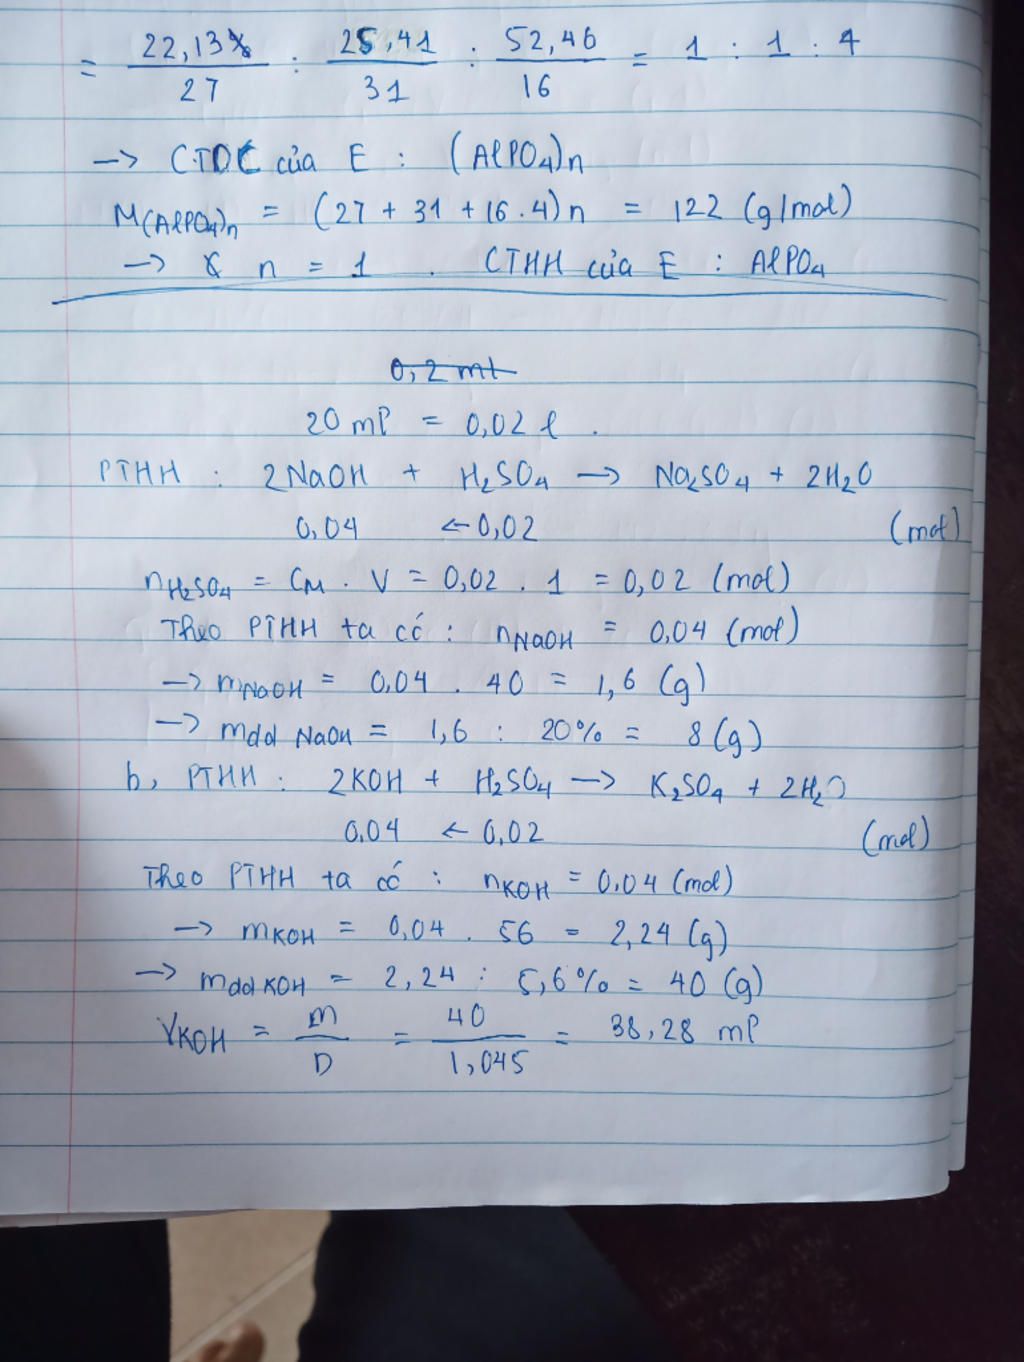 = 22,13% / 27 : 25,41 / 31 : 52,46 / 16 = 1 : 1 : 4
-> CTDC của E : (AlPO4)n
M(AlPO4)n = (27 + 31 + 16 . 4)n = 122 (g/mol)
-> n = 1 . CTHH của E : AlPO4
0,2 ml
20 ml = 0,02 l .
PTHH : 2NaOH + H2SO4 -> Na2SO4 + 2H2O
0,04 <- 0,02 (mol)
nH2SO4 = CM . V = 0,02 . 1 = 0,02 (mol)
Theo PTHH ta có : nNaOH = 0,04 (mol)
-> mNaOH = 0,04 . 40 = 1,6 (g)
-> mdd NaOH = 1,6 : 20% = 8 (g)
b, PTHH : 2KOH + H2SO4 -> K2SO4 + 2H2O
0,04 <- 0,02 (mol)
Theo PTHH ta có : nKOH = 0,04 (mol)
-> mKOH = 0,04 . 56 = 2,24 (g)
-> mdd KOH = 2,24 : 5,6% = 40 (g)
VKOH = m / D = 40 / 1,045 = 38,28 ml